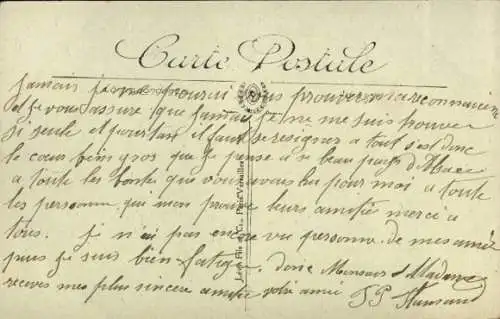 Carte Postale
jamais je ne pourai vous prouver ma reconnaissance
et je vous assure que jamais je ne me suis trouvée
si seule et pourtant il faut se resigner a tout s'est donc
le cœur bien gros que je pense a se beau pays d'
a toute les bontés que vous avez eu pour moi a toute
les personne qui mon prouvé leurs amitiés merci a
tous. je n'ai pas encore vu personne de mes amies
puis je suis bien fatiguée donc Monsieur & Madame
recevez mes plus sincère amitiés votre amie
Léon Fils & Cie, Paris-Versailles